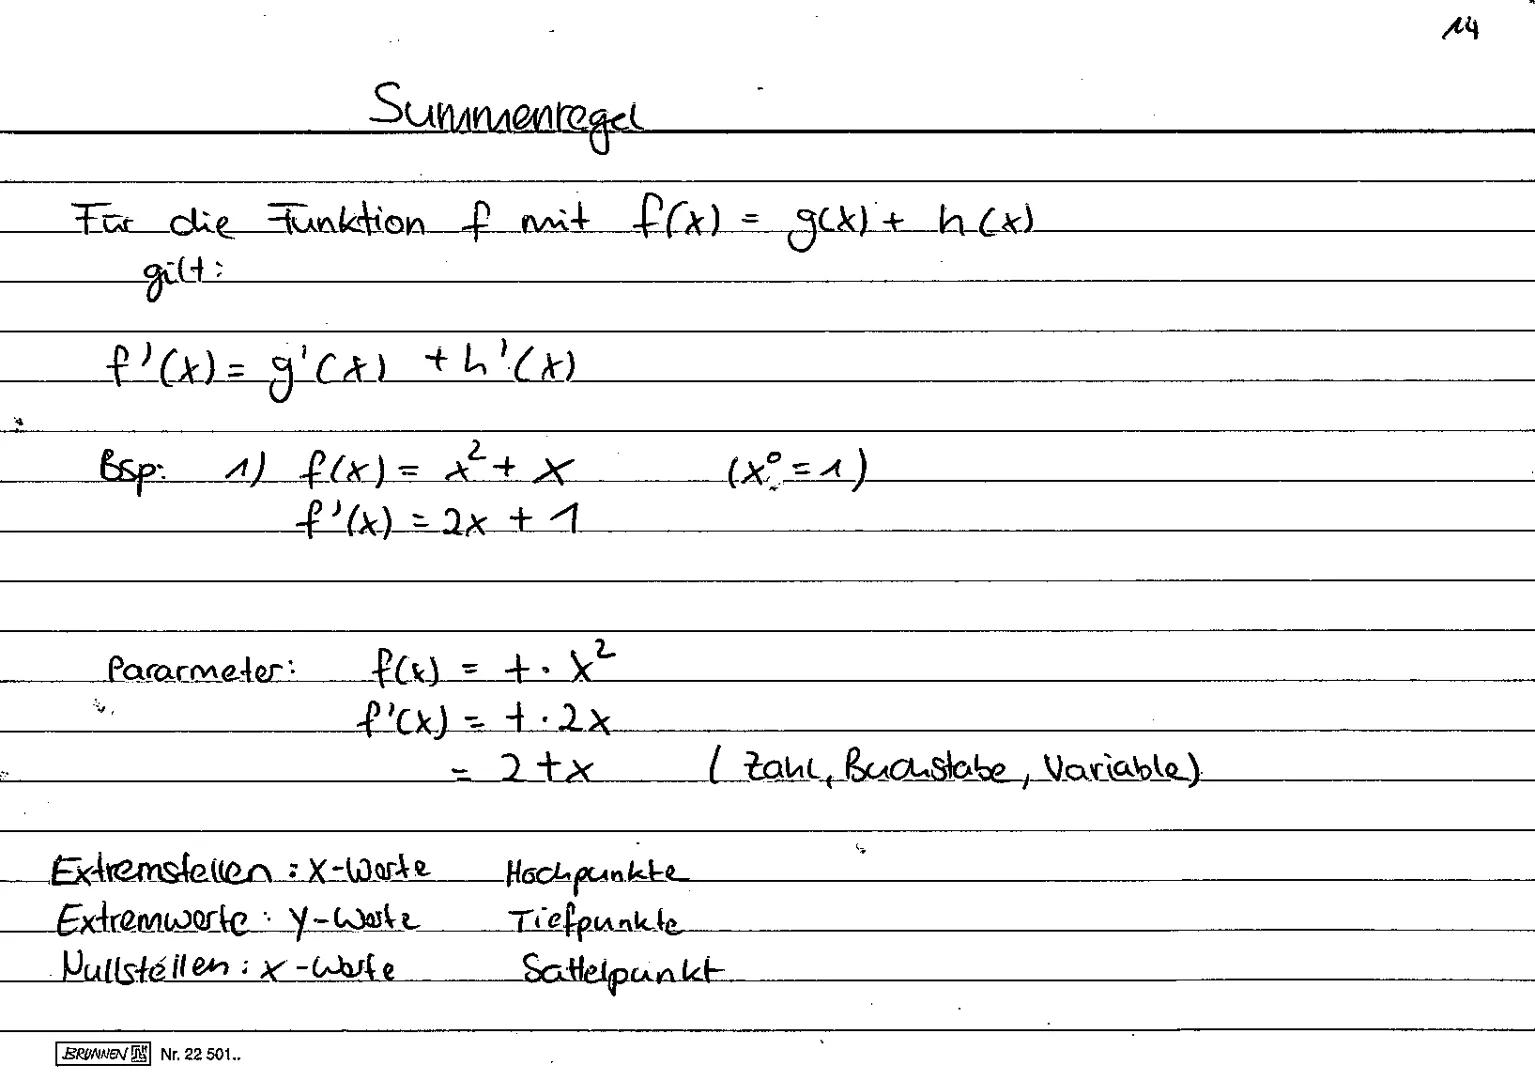 14
Summenregel
Für die Funktion f mit f(x) = g(x) + h(x)
gilt:
f'(x) = g'(x) + h'(x)
Bsp: 1) f(x) = x² + x (x⁰ = 1)
f'(x) = 2x + 1
Pararmeter: f(x) = t · x²
f'(x) = t · 2x
= 2tx (Zahl, Buchstabe, Variable)
Extremstellen : x-Werte Hochpunkte
Extremwerte : y-Werte Tiefpunkte
Nullstellen : x-Werte Sattelpunkt
BRUNNEN Nr. 22 501..